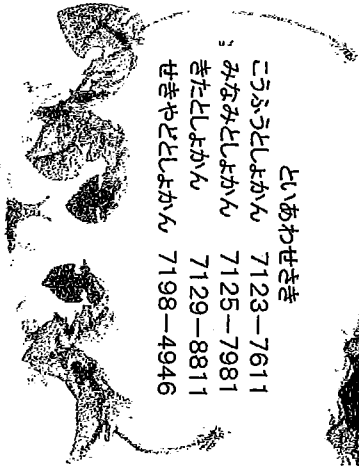 といあわせさき
こうふうとしょかん 7123—7611
みなみとしょかん 7125—7981
きたとしょかん 7129—8811
せきやどとしょかん 7198—4946